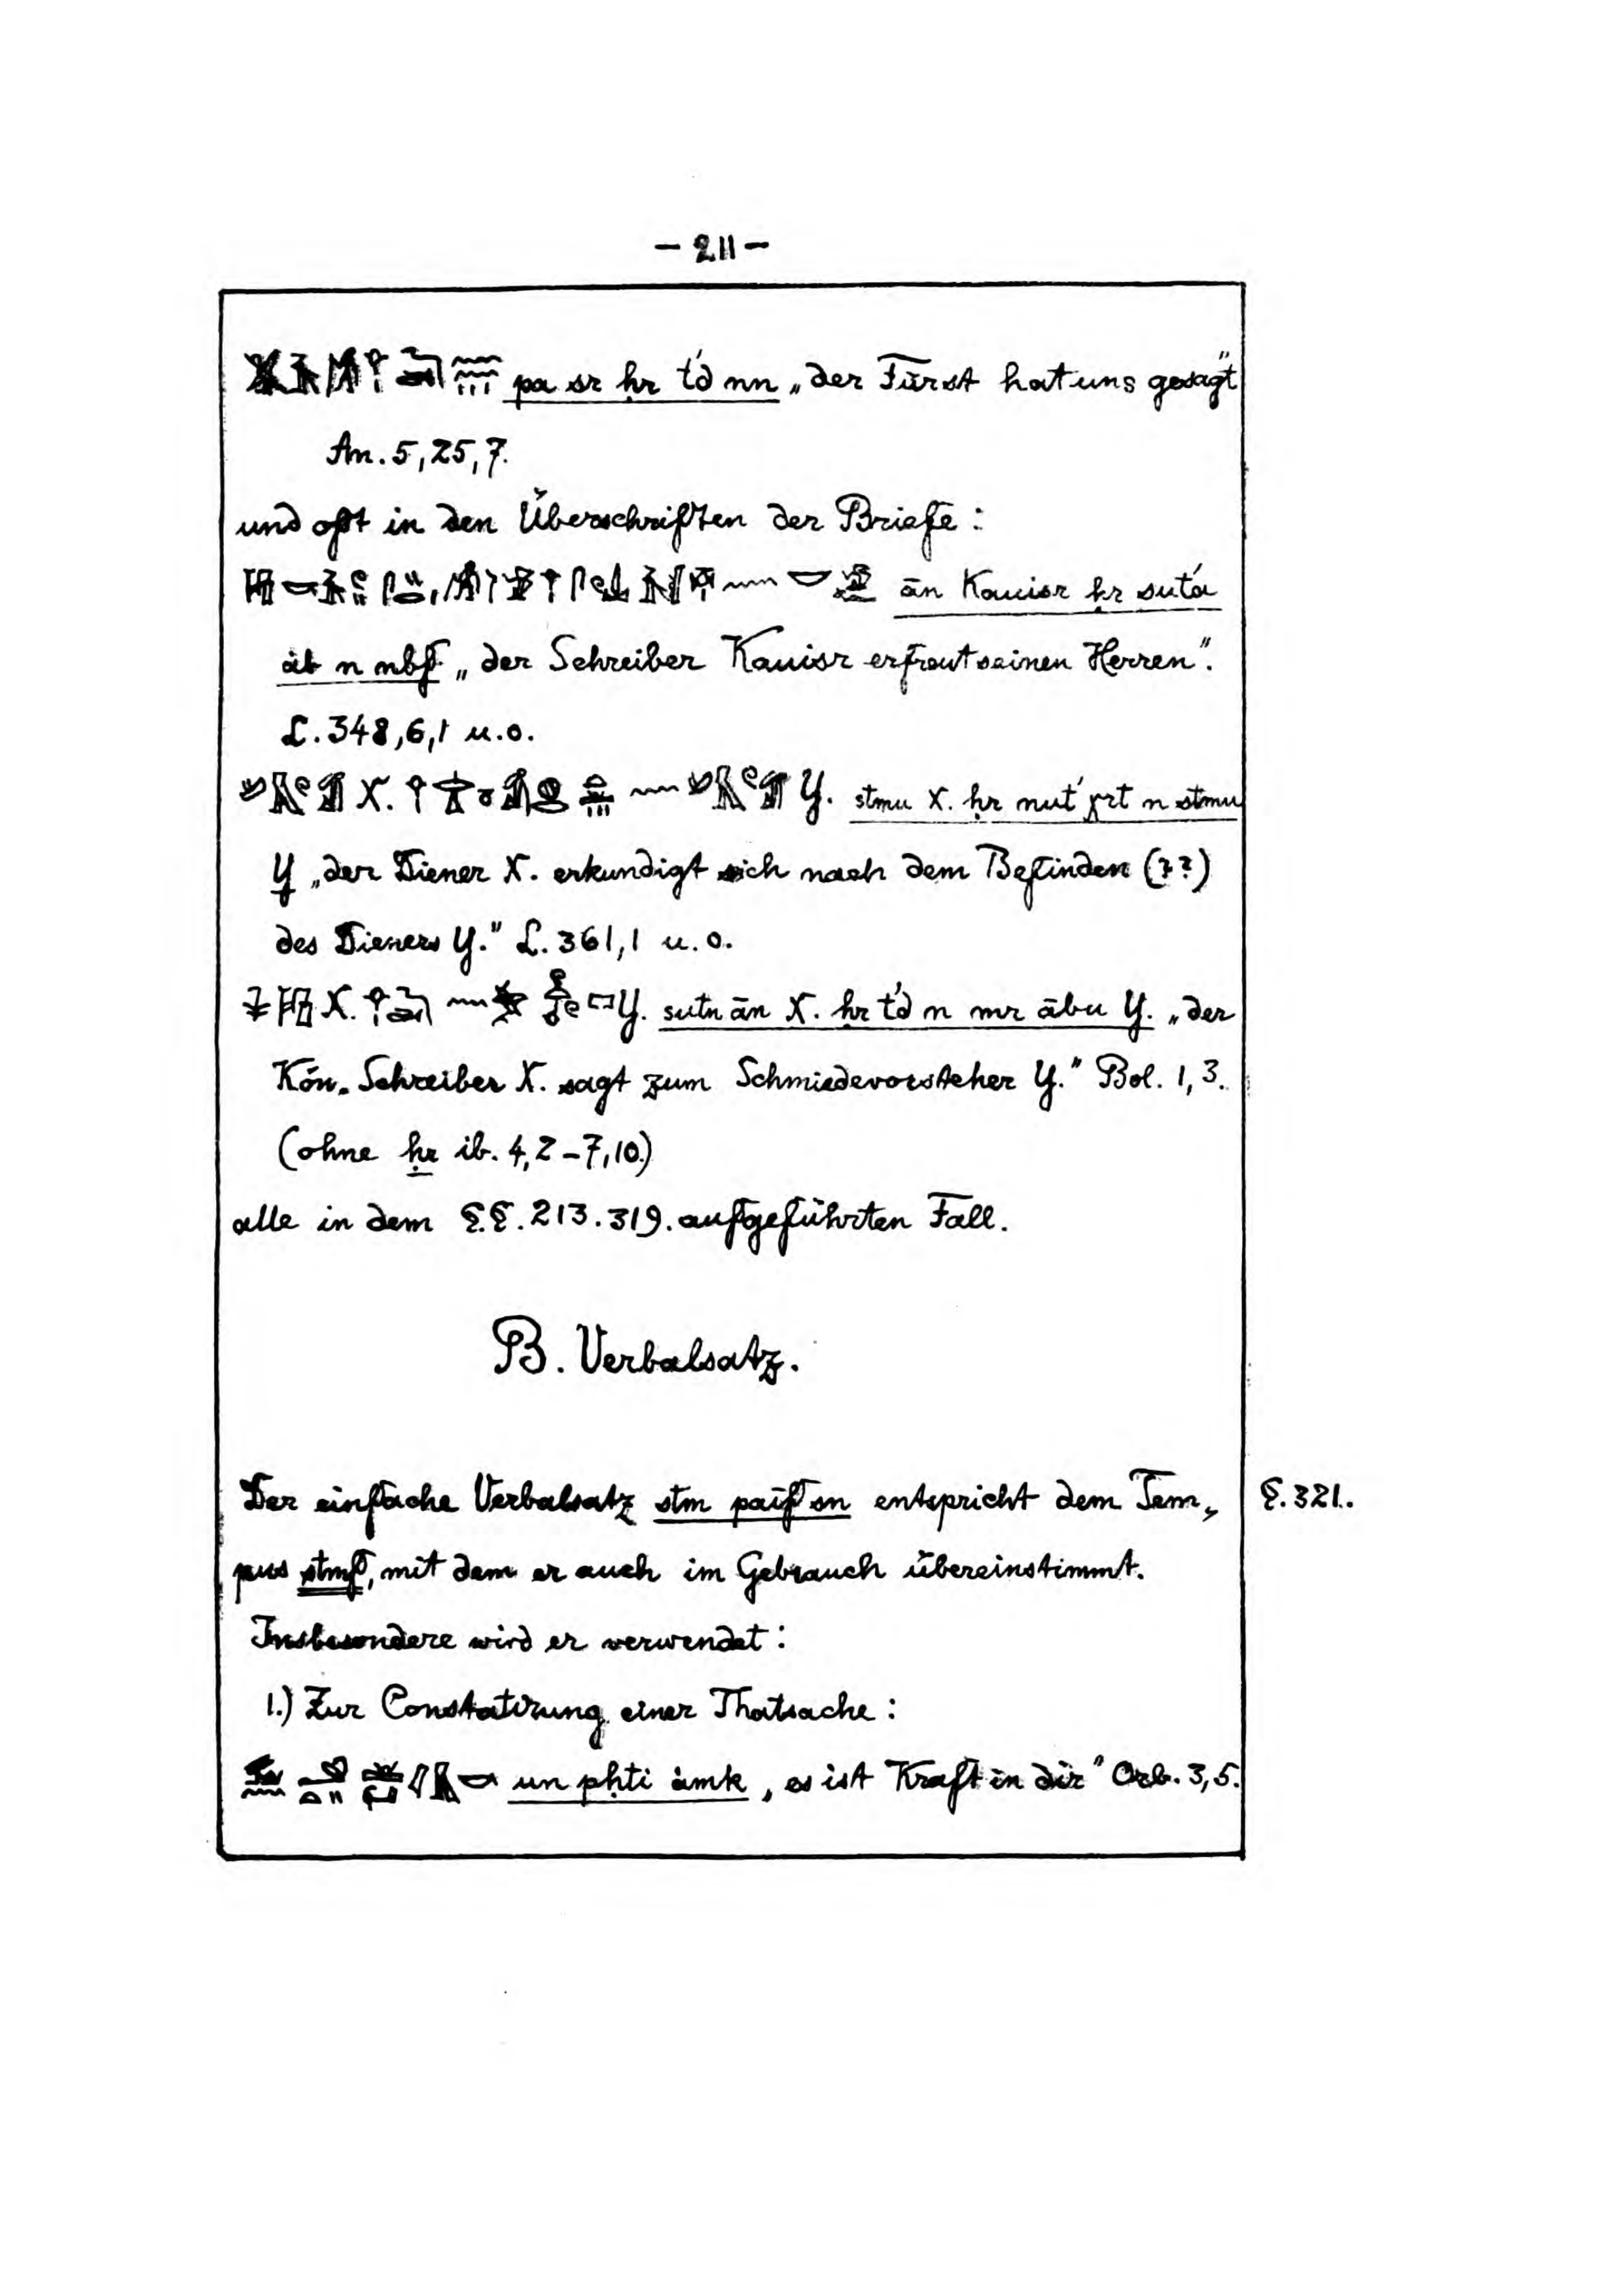 — 211 —
pa sr ḥr t'd nn „der Fürst hat uns gesagt"
An. 5, 25, 7.
und oft in den Überschriften der Briefe:
ān Kauisr ḥr sut'a
àb n nbf „der Schreiber Kauisr erfreut seinen Herren".
L. 348, 6, 1 u. o.
X. Y. stmu X. ḥr nut' χrt n stmu
Y „der Diener X. erkundigt sich nach dem Befinden (??)
des Dieners Y." L. 361, 1 u. o.
X. Y. sutn ān X. ḥr t'd n mr ābu Y. „der
Kön. Schreiber X. sagt zum Schmiedevorsteher Y." Bol. 1, 3.
(ohne ḥr ib. 4, 2 – 7, 10.)
alle in dem §.§. 213. 319. aufgeführten Fall.
B. Verbalsatz.
Der einfache Verbalsatz stm paif sn entspricht dem Tem- §. 321.
pus stmf, mit dem er auch im Gebrauch übereinstimmt.
Insbesondere wird er verwendet:
1.) Zur Constatirung einer Thatsache:
un pḥti àmk „es ist Kraft in dir" Orb. 3, 5.